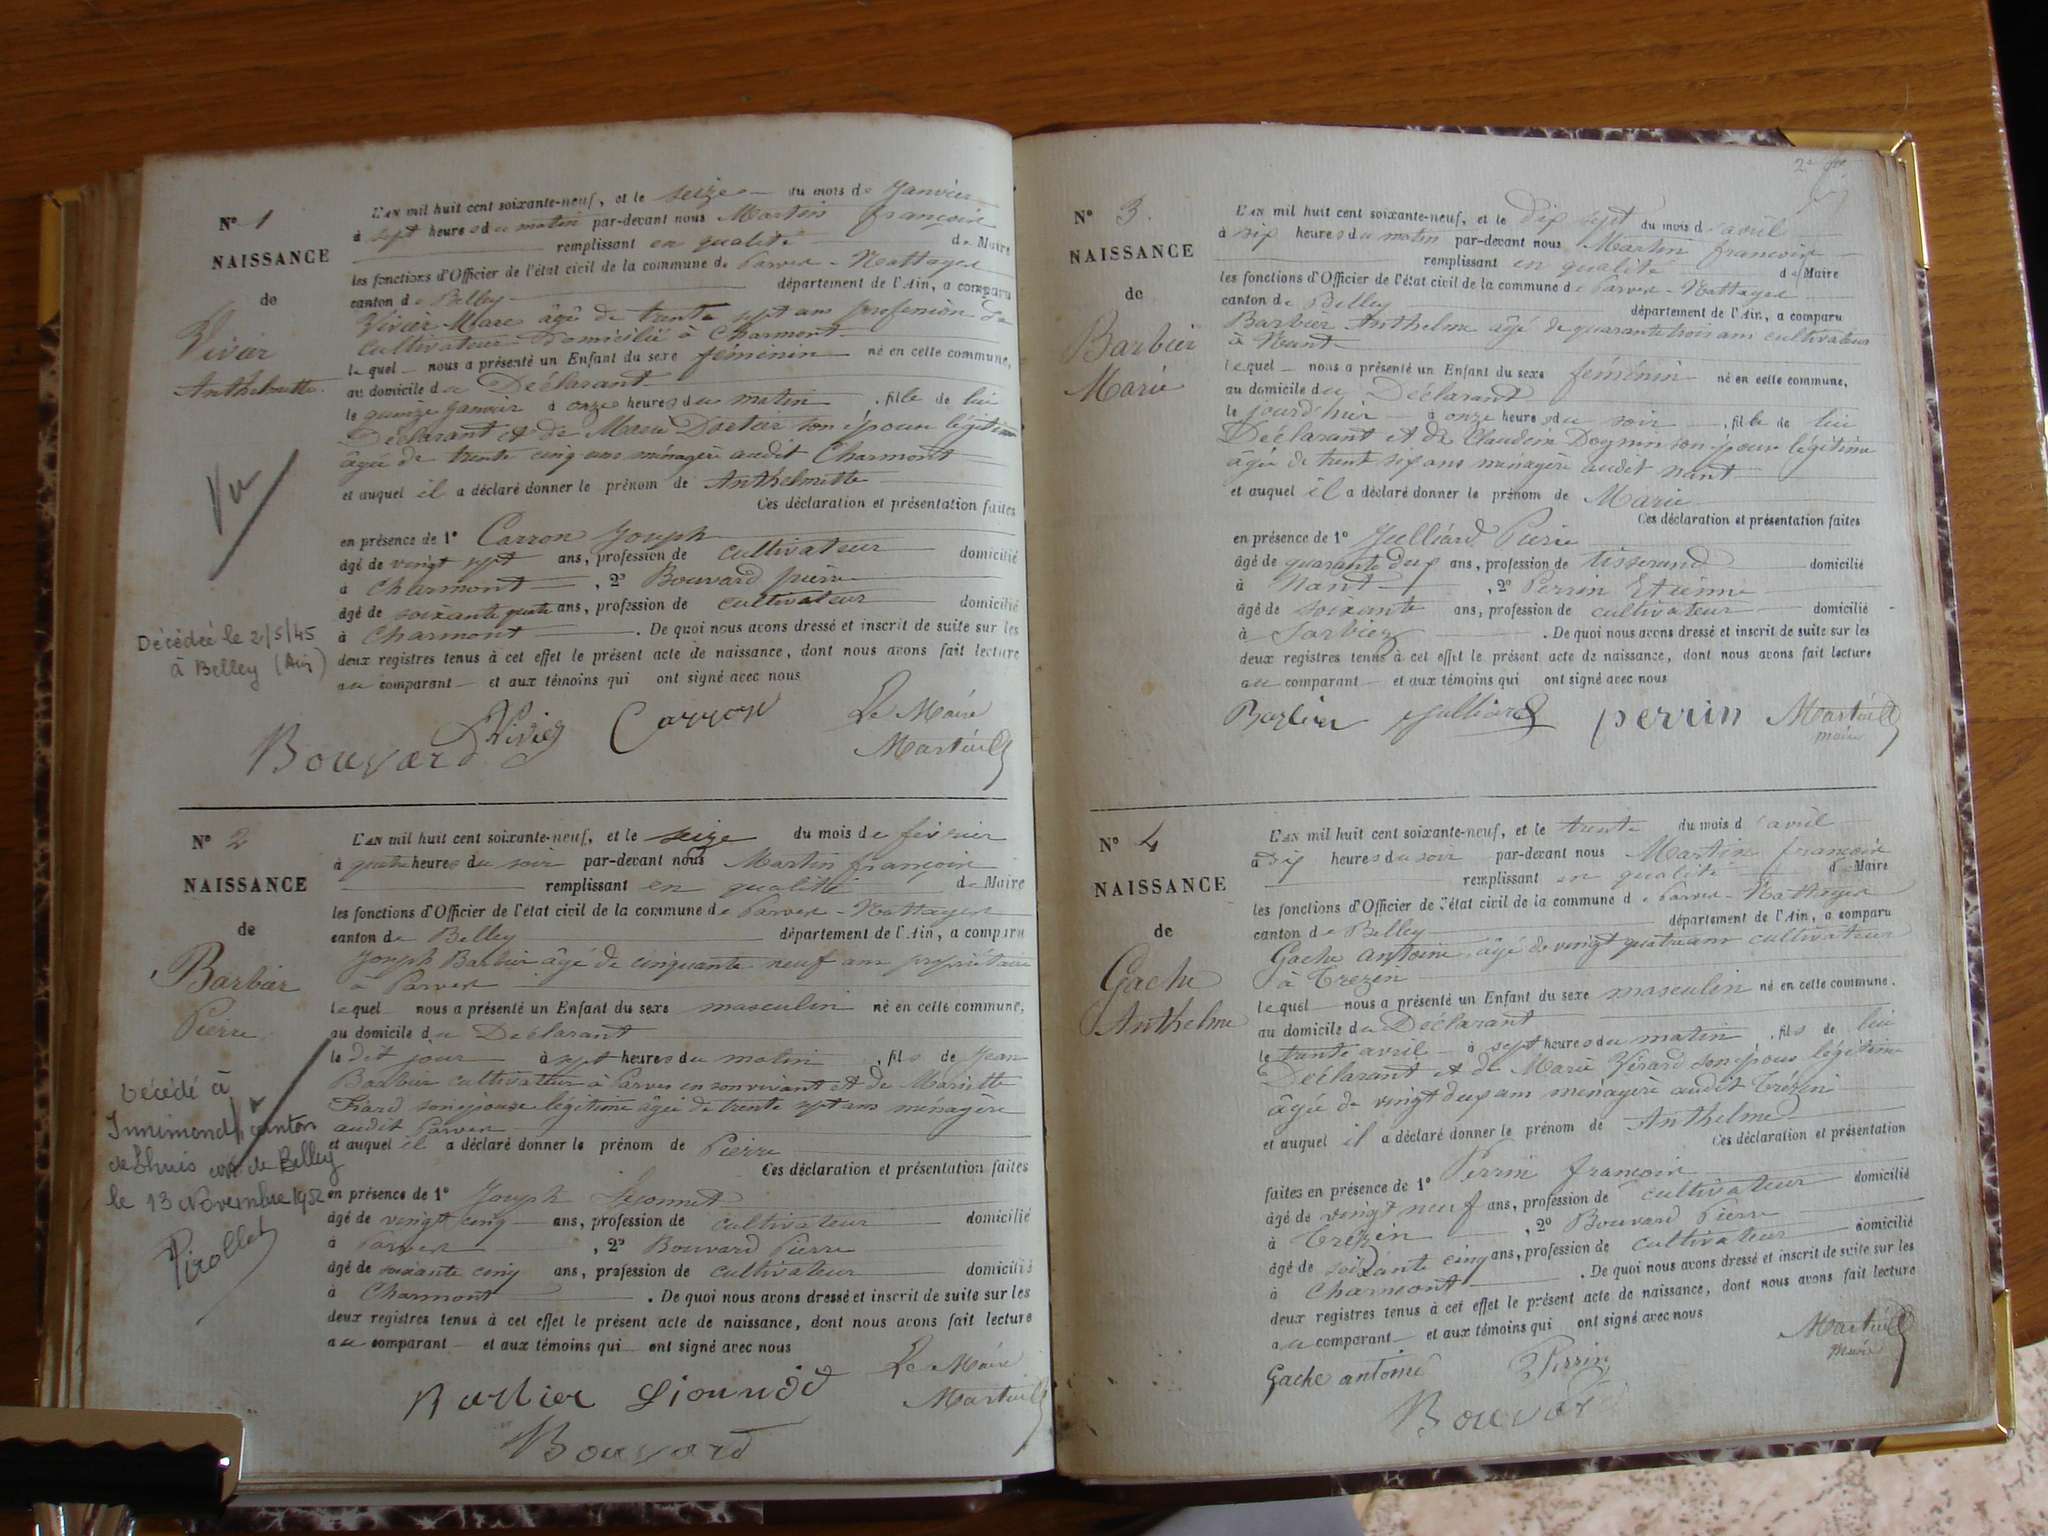 N° 1
NAISSANCE
de
Vivier
Anthelmette
Vu
Décédée le 2/5/45
à Belley (Ain)
L'AN mil huit cent soixante-neuf, et le seize du mois de Janvier
à sept heures du matin par-devant nous Martin françois
remplissant en qualité de Maire
les fonctions d'Officier de l'état civil de la commune de Parves-Nattages
canton de Belley département de l'Ain, a comparu
Vivier Marc âgé de trente sept ans profession de
cultivateur Domicilié à Charmont
lequel nous a présenté un Enfant du sexe féminin né en cette commune,
au domicile du Déclarant
le quinze Janvier à onze heures du matin , fille de lui
Déclarant et de Marie son épouse légitime
âgée de trente cinq ans ménagère audit Charmont
et auquel il a déclaré donner le prénom de Anthelmette
Ces déclaration et présentation faites
en présence de 1° Carron Joseph
âgé de vingt sept ans, profession de cultivateur domicilié
à Charmont , 2° Bouvard pierre
âgé de soixante quatre ans, profession de cultivateur domicilié
à Charmont . De quoi nous avons dressé et inscrit de suite sur les
deux registres tenus à cet effet le présent acte de naissance, dont nous avons fait lecture
au comparant et aux témoins qui ont signé avec nous
Bouvard Vivier Carron Le Maire
Martin
N° 2
NAISSANCE
de
Barbier
Pierre
Décédé à
Innimond canton
de Lhuis de Belley
le 13 Novembre 1952
Pirollet
L'AN mil huit cent soixante-neuf, et le seize du mois de février
à quatre heures du soir par-devant nous Martin françois
remplissant en qualité de Maire
les fonctions d'Officier de l'état civil de la commune de Parves-Nattages
canton de Belley département de l'Ain, a comparu
Joseph Barbier âgé de cinquante neuf ans propriétaire
à Parves
lequel nous a présenté un Enfant du sexe masculin né en cette commune,
au domicile du Déclarant
le dit jour à sept heures du matin , fils de Jean
Barbier cultivateur à Parves en son vivant et de Mariette
son épouse légitime âgée de trente sept ans ménagère
audit Parves
et auquel il a déclaré donner le prénom de Pierre
Ces déclaration et présentation faites
en présence de 1° Joseph
âgé de vingt cinq ans, profession de cultivateur domicilié
à Parves , 2° Bouvard Pierre
âgé de soixante cinq ans, profession de cultivateur domicilié
à Charmont . De quoi nous avons dressé et inscrit de suite sur les
deux registres tenus à cet effet le présent acte de naissance, dont nous avons fait lecture
au comparant et aux témoins qui ont signé avec nous
Barbier Le Maire
Bouvard Martin
N° 3
NAISSANCE
de
Barbier
Marie
L'AN mil huit cent soixante-neuf, et le dix sept du mois d'avril
à six heures du matin par-devant nous Martin françois
remplissant en qualité de Maire
les fonctions d'Officier de l'état civil de la commune de Parves-Nattages
canton de Belley département de l'Ain, a comparu
Barbier Anthelme âgé de quarante trois ans cultivateur
à Nant
lequel nous a présenté un Enfant du sexe féminin né en cette commune,
au domicile du Déclarant
le jourd'hier à onze heures du soir , fille de lui
Déclarant et de Claudine son épouse légitime
âgée de trent six ans ménagère audit nant
et auquel il a déclaré donner le prénom de Marie
Ces déclaration et présentation faites
en présence de 1° Julliard Pierre
âgé de quarante deux ans, profession de tisserand domicilié
à Nant , 2° Perrin Etienne
âgé de soixante ans, profession de cultivateur domicilié
à Sorbier . De quoi nous avons dressé et inscrit de suite sur les
deux registres tenus à cet effet le présent acte de naissance, dont nous avons fait lecture
au comparant et aux témoins qui ont signé avec nous
Barbier Julliard perrin Martin
maire
N° 4
NAISSANCE
de
Gache
Anthelme
L'AN mil huit cent soixante-neuf, et le trente du mois d'avril
à dix heures du soir par-devant nous Martin françois
remplissant en qualité de Maire
les fonctions d'Officier de l'état civil de la commune de Parves-Nattages
canton de Belley département de l'Ain, a comparu
Gache antoine âgé de vingt quatre ans cultivateur
à Trezin
lequel nous a présenté un Enfant du sexe masculin né en cette commune.
au domicile du Déclarant
le trente avril à sept heures du matin , fils de lui
Déclarant et de Marie son épouse légitime
âgée de vingt deux ans ménagère audit Trézin
et auquel il a déclaré donner le prénom de Anthelme
Ces déclaration et présentation
faites en présence de 1° Perrin françois
âgé de vingt neuf ans, profession de cultivateur domicilié
à Trezin , 2° Bouvard Pierre
âgé de soixante cinq ans, profession de cultivateur domicilié
à Charmont . De quoi nous avons dressé et inscrit de suite sur les
deux registres tenus à cet effet le présent acte de naissance, dont nous avons fait lecture
au comparant et aux témoins qui ont signé avec nous
Gache antoine Perrin Martin
maire
Bouvard